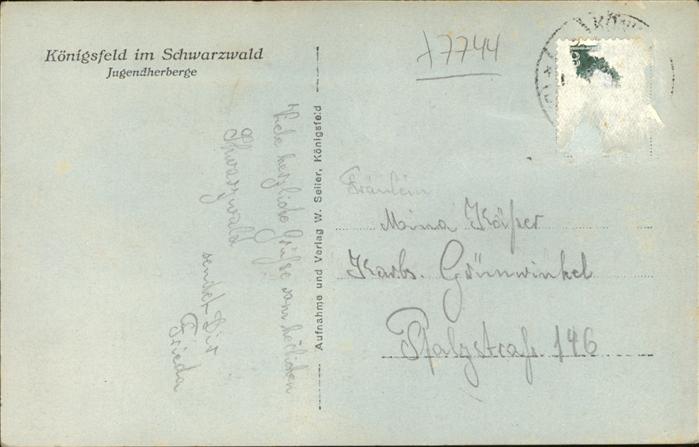 Königsfeld im Schwarzwald
Jugendherberge
λ7744
Viele herzliche Grüße vom
Schwarzwald
sendet Dir
Frieda
Aufnahme und Verlag W. Seiler, Königsfeld
Fräulein
Mina Käßer
Karls. Grünwinkel
Pfalzstraß. 146